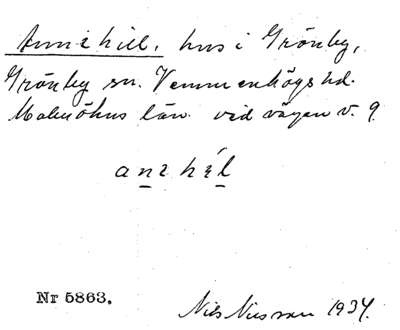 Annehill, hus i Grönby,
Grönby sn. Vemmenhögs hd.
Malmöhus län. vid vägen v. 9
Nr 5863.
Nils Nilsson 1934.